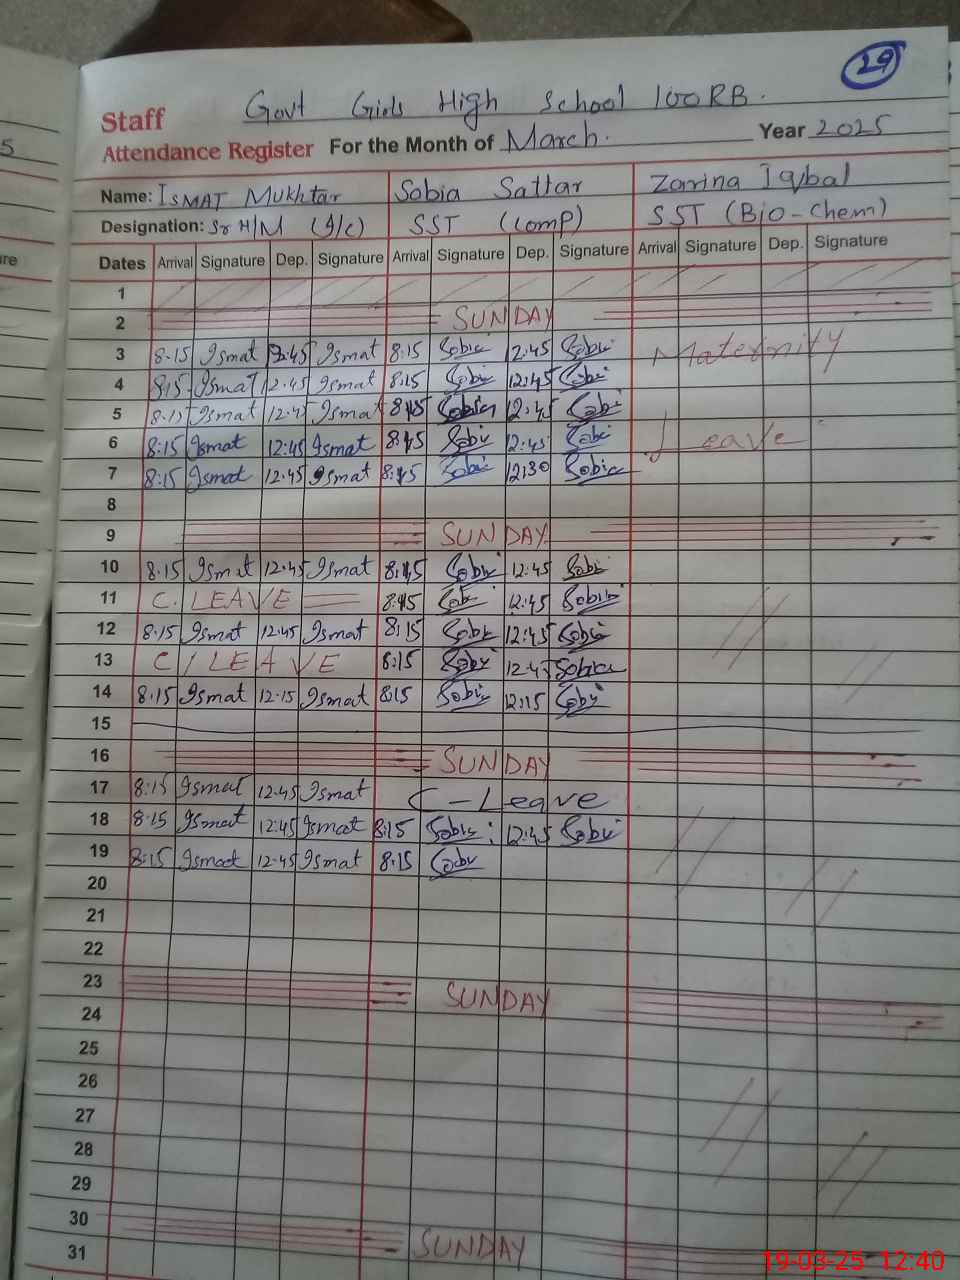 29
Govt Girls High School 100RB.
Staff
Attendance Register For the Month of March. Year 2025
Name: ISMAT Mukhtar Sobia Sattar Zarina Iqbal
Designation: Sr H/M (I/c) SST (Comp) SST (Bio-Chem)
Dates Arrival Signature Dep. Signature Arrival Signature Dep. Signature Arrival Signature Dep. Signature
1
2 SUNDAY
3 8:15 Ismat 12:45 Ismat 8:15 Sobia 12:45 Sobia Maternity
4 8:15 Ismat 12:45 Ismat 8:15 Sobia 12:45 Sobia
5 8:15 Ismat 12:45 Ismat 8:15 Sobia 12:45 Sobia
6 8:15 Ismat 12:45 Ismat 8:15 Sobia 12:45 Sobia Leave
7 8:15 Ismat 12:45 Ismat 8:15 Sobia 12:30 Sobia
8
9 SUNDAY
10 8:15 Ismat 12:45 Ismat 8:15 Sobia 12:45 Sobia
11 C. LEAVE 8:15 Sobia 12:45 Sobia
12 8:15 Ismat 12:45 Ismat 8:15 Sobia 12:45 Sobia
13 C/LEAVE 8:15 Sobia 12:45 Sobia
14 8:15 Ismat 12:15 Ismat 8:15 Sobia 12:15 Sobia
15
16 SUNDAY
17 8:15 Ismat 12:45 Ismat C-Leave
18 8:15 Ismat 12:45 Ismat 8:15 Sobia 12:45 Sobia
19 8:15 Ismat 12:45 Ismat 8:15 Sobia
20
21
22
23 SUNDAY
24
25
26
27
28
29
30 SUNDAY
31
19-03-25 12:40